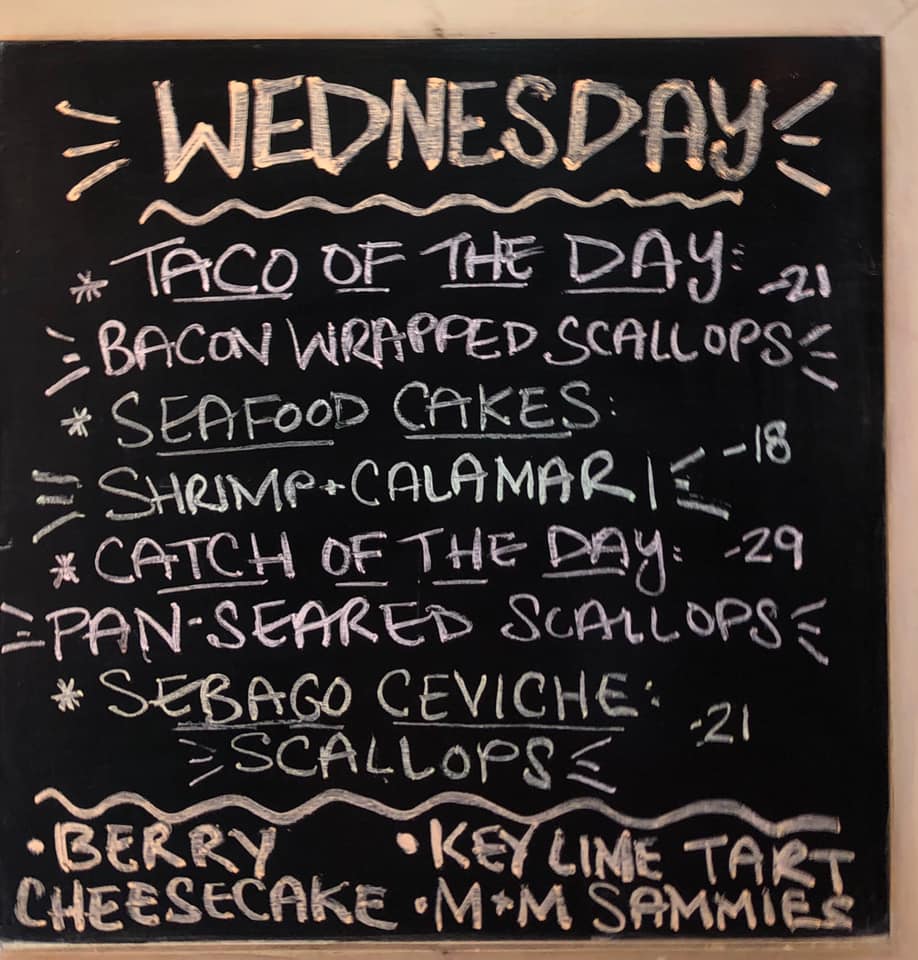 WEDNESDAY
* TACO OF THE DAY: -21
BACON WRAPPED SCALLOPS
* SEAFOOD CAKES:
SHRIMP + CALAMARI -18
* CATCH OF THE DAY: -29
PAN-SEARED SCALLOPS
* SEBAGO CEVICHE: -21
SCALLOPS
• BERRY
CHEESECAKE
• KEY LIME TART
• M+M SAMMIES